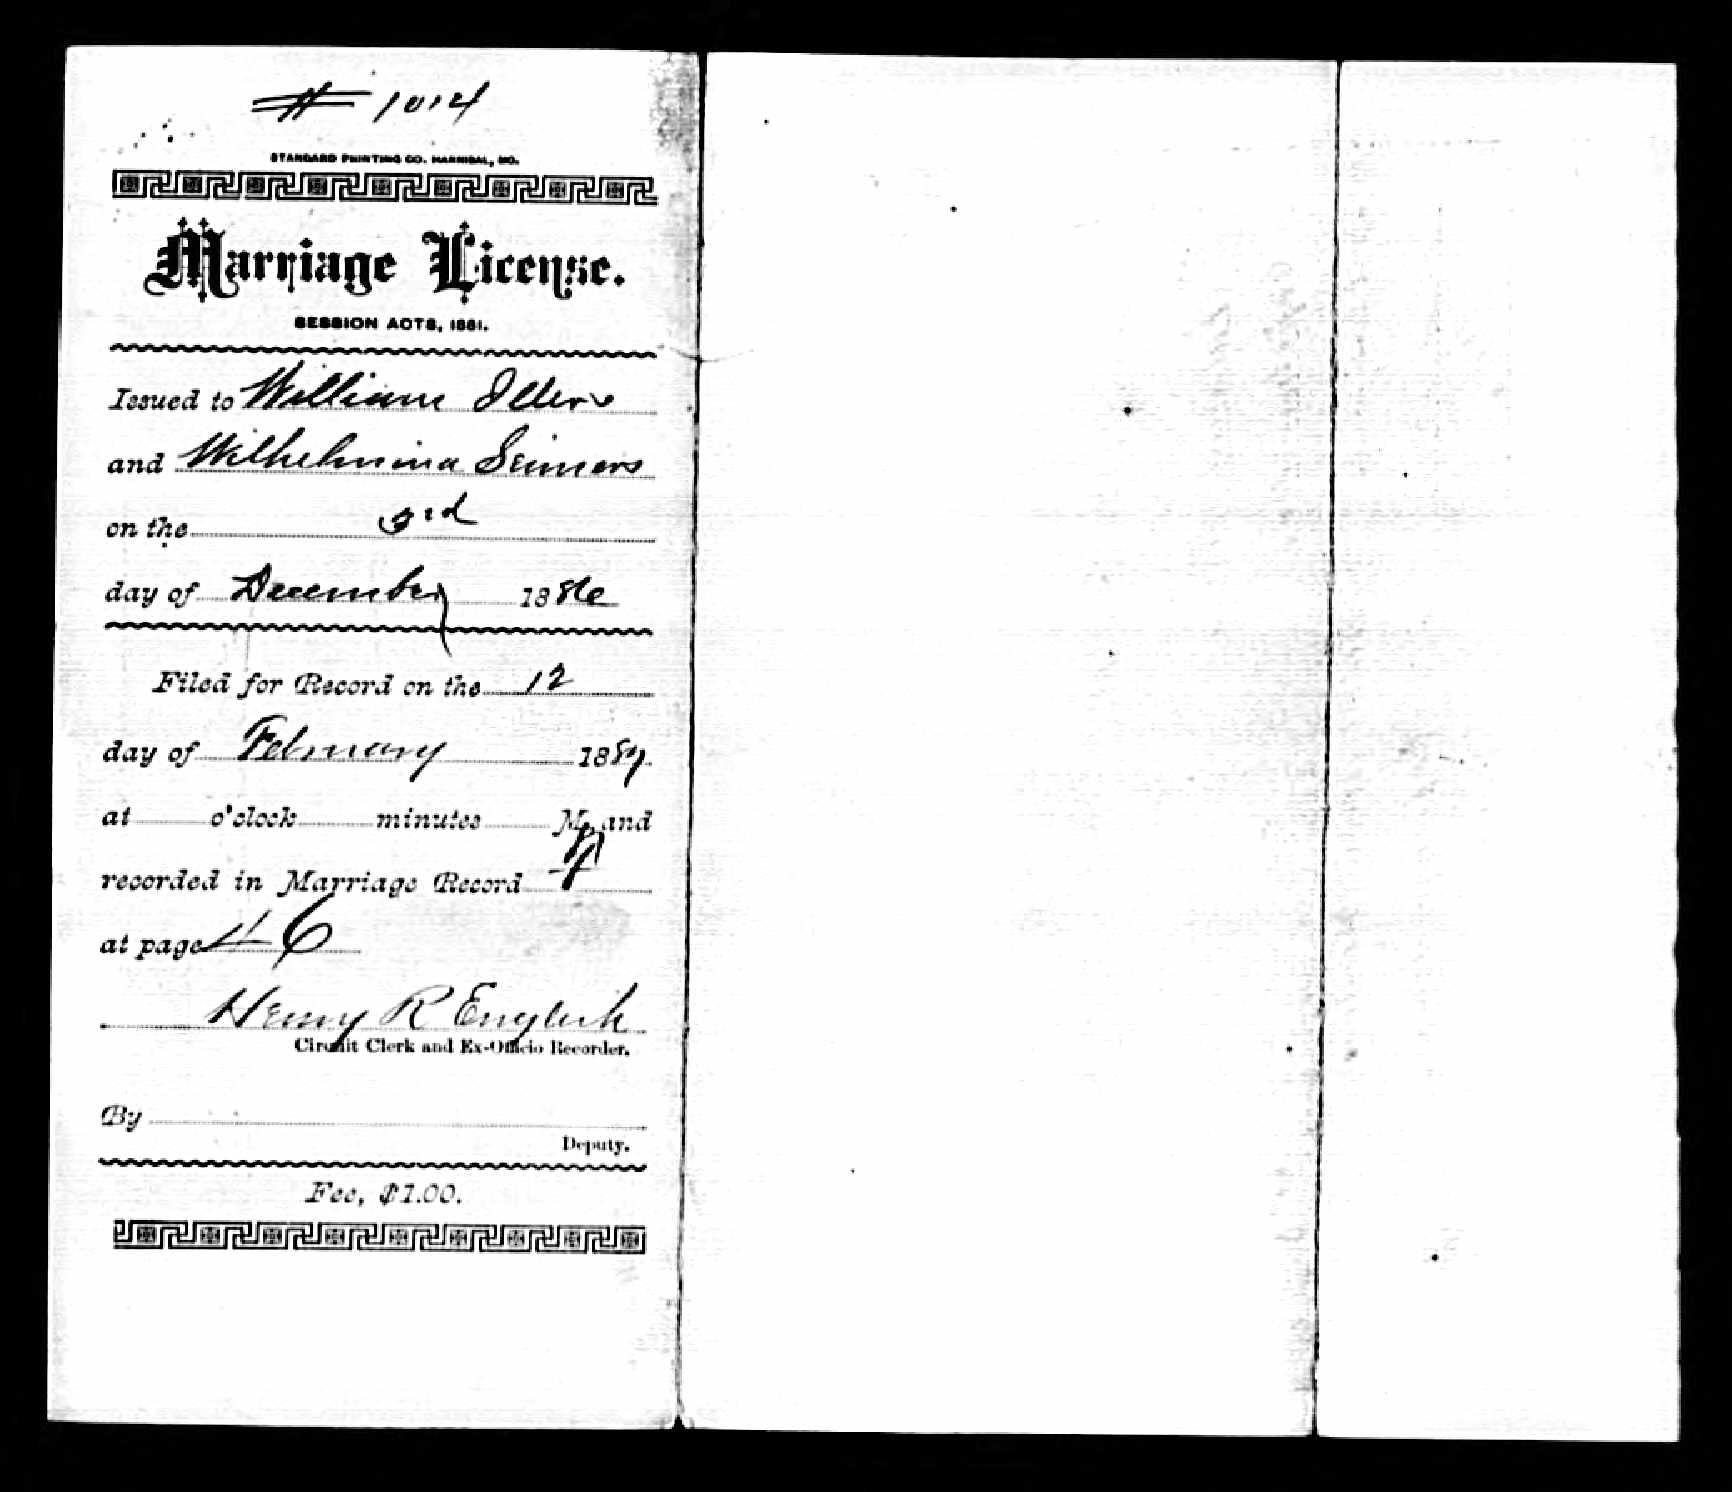 # 1014
STANDARD PRINTING CO. HANNIBAL, MO.
Marriage License.
SESSION ACTS, 1881.
Issued to William Illers
and Wilhelmina Seimers
on the 3rd
day of December 1886
Filed for Record on the 12
day of February 1887.
at o'clock minutes M. and
recorded in Marriage Record
at page 46
Henry R English
Circuit Clerk and Ex-Officio Recorder.
By
Deputy.
Fee, $1.00.